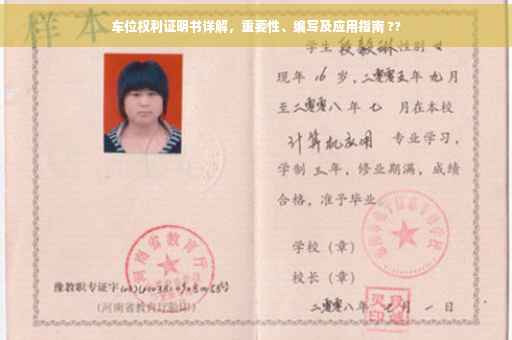 车位权利证明书详解，重要性、编写及应用指南 ??
样本
学生段毅琳性别女
现年16岁，二零零五年九月
至二零零八年七 月在本校
计算机应用 专业学习，
学制三年，修业期满，成绩
合格，准予毕业。
学校（章）
校长（章）
二零零八年七月一日
河南省教育厅
豫教职专证字
（河南省教育厅验印）